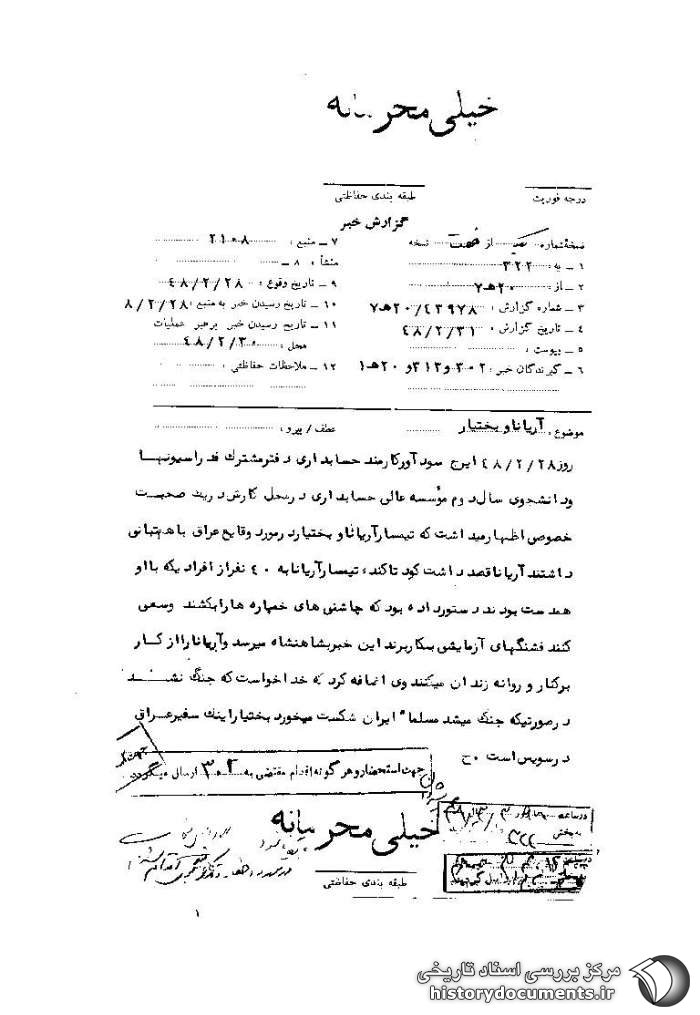 خیلی محرمانه
درجه فوریت
طبقه بندی حفاظتی
گزارش خبر
نسخه شماره یک از هفت نسخه
۱ ــ به : ۳۲۲
۲ ــ از : ۲۰هـ۷
۳ ــ شماره گزارش : ۲۰/۴۳۹۷۸هـ۷
۴ ــ تاریخ گزارش : ۴۸/۲/۳۱
۵ ــ پیوست :
۶ ــ گیرندگان خبر : ۳۰۲ و ۳۱۲ و ۲۰هـ۱
۷ ــ منبع : ۲۱۰۸
۸ ــ منشأ :
۹ ــ تاریخ وقوع : ۴۸/۲/۲۸
۱۰ ــ تاریخ رسیدن خبر به منبع : ۸/۲/۲۸
۱۱ ــ تاریخ رسیدن خبر برهبر عملیات
محل : ۴۸/۲/۳۰
۱۲ ــ ملاحظات حفاظتی :
موضوع : آریانا و بختیار
عطف / پیرو :
روز ۴۸/۲/۲۸ ایرج سودآور کارمند حسابداری دفتر مشترك فدراسیونها
ودانشجوی سال دوم مؤسسه عالی حسابداری درمحل کارش در صحبت
خصوصی اظهار میداشت که تیمسار آریانا و بختیار در مورد وقایع عراق با هم تبانی
داشتند آریانا قصد داشت کودتا کند ، تیمسار آریانا به ۴۰ نفر از افراد یکه با او
همدست بودند دستور داده بود که چاشنی های خمپاره ها را بکشند وسعی
کنند فشنگهای آزمایشی بکار برند این خبر بشاهنشاه میرسد وآریانا را از کار
برکنار و روانه زندان میکنند وی اضافه کرد که خدا خواست که جنگ نشد
درصورتیکه جنگ میشد مسلما" ایران شکست میخورد بختیار اینك سفیر عراق
در سویس است ۰ ح
جهت استحضار و هر گونه اقدام مقتضی به ۳۰۲ ارسال میگردد
خیلی محرمانه
طبقه بندی حفاظتی
در ساعت
به بخش ۳۲۲
۱
مرکز بررسی اسناد تاریخی
historydocuments.ir